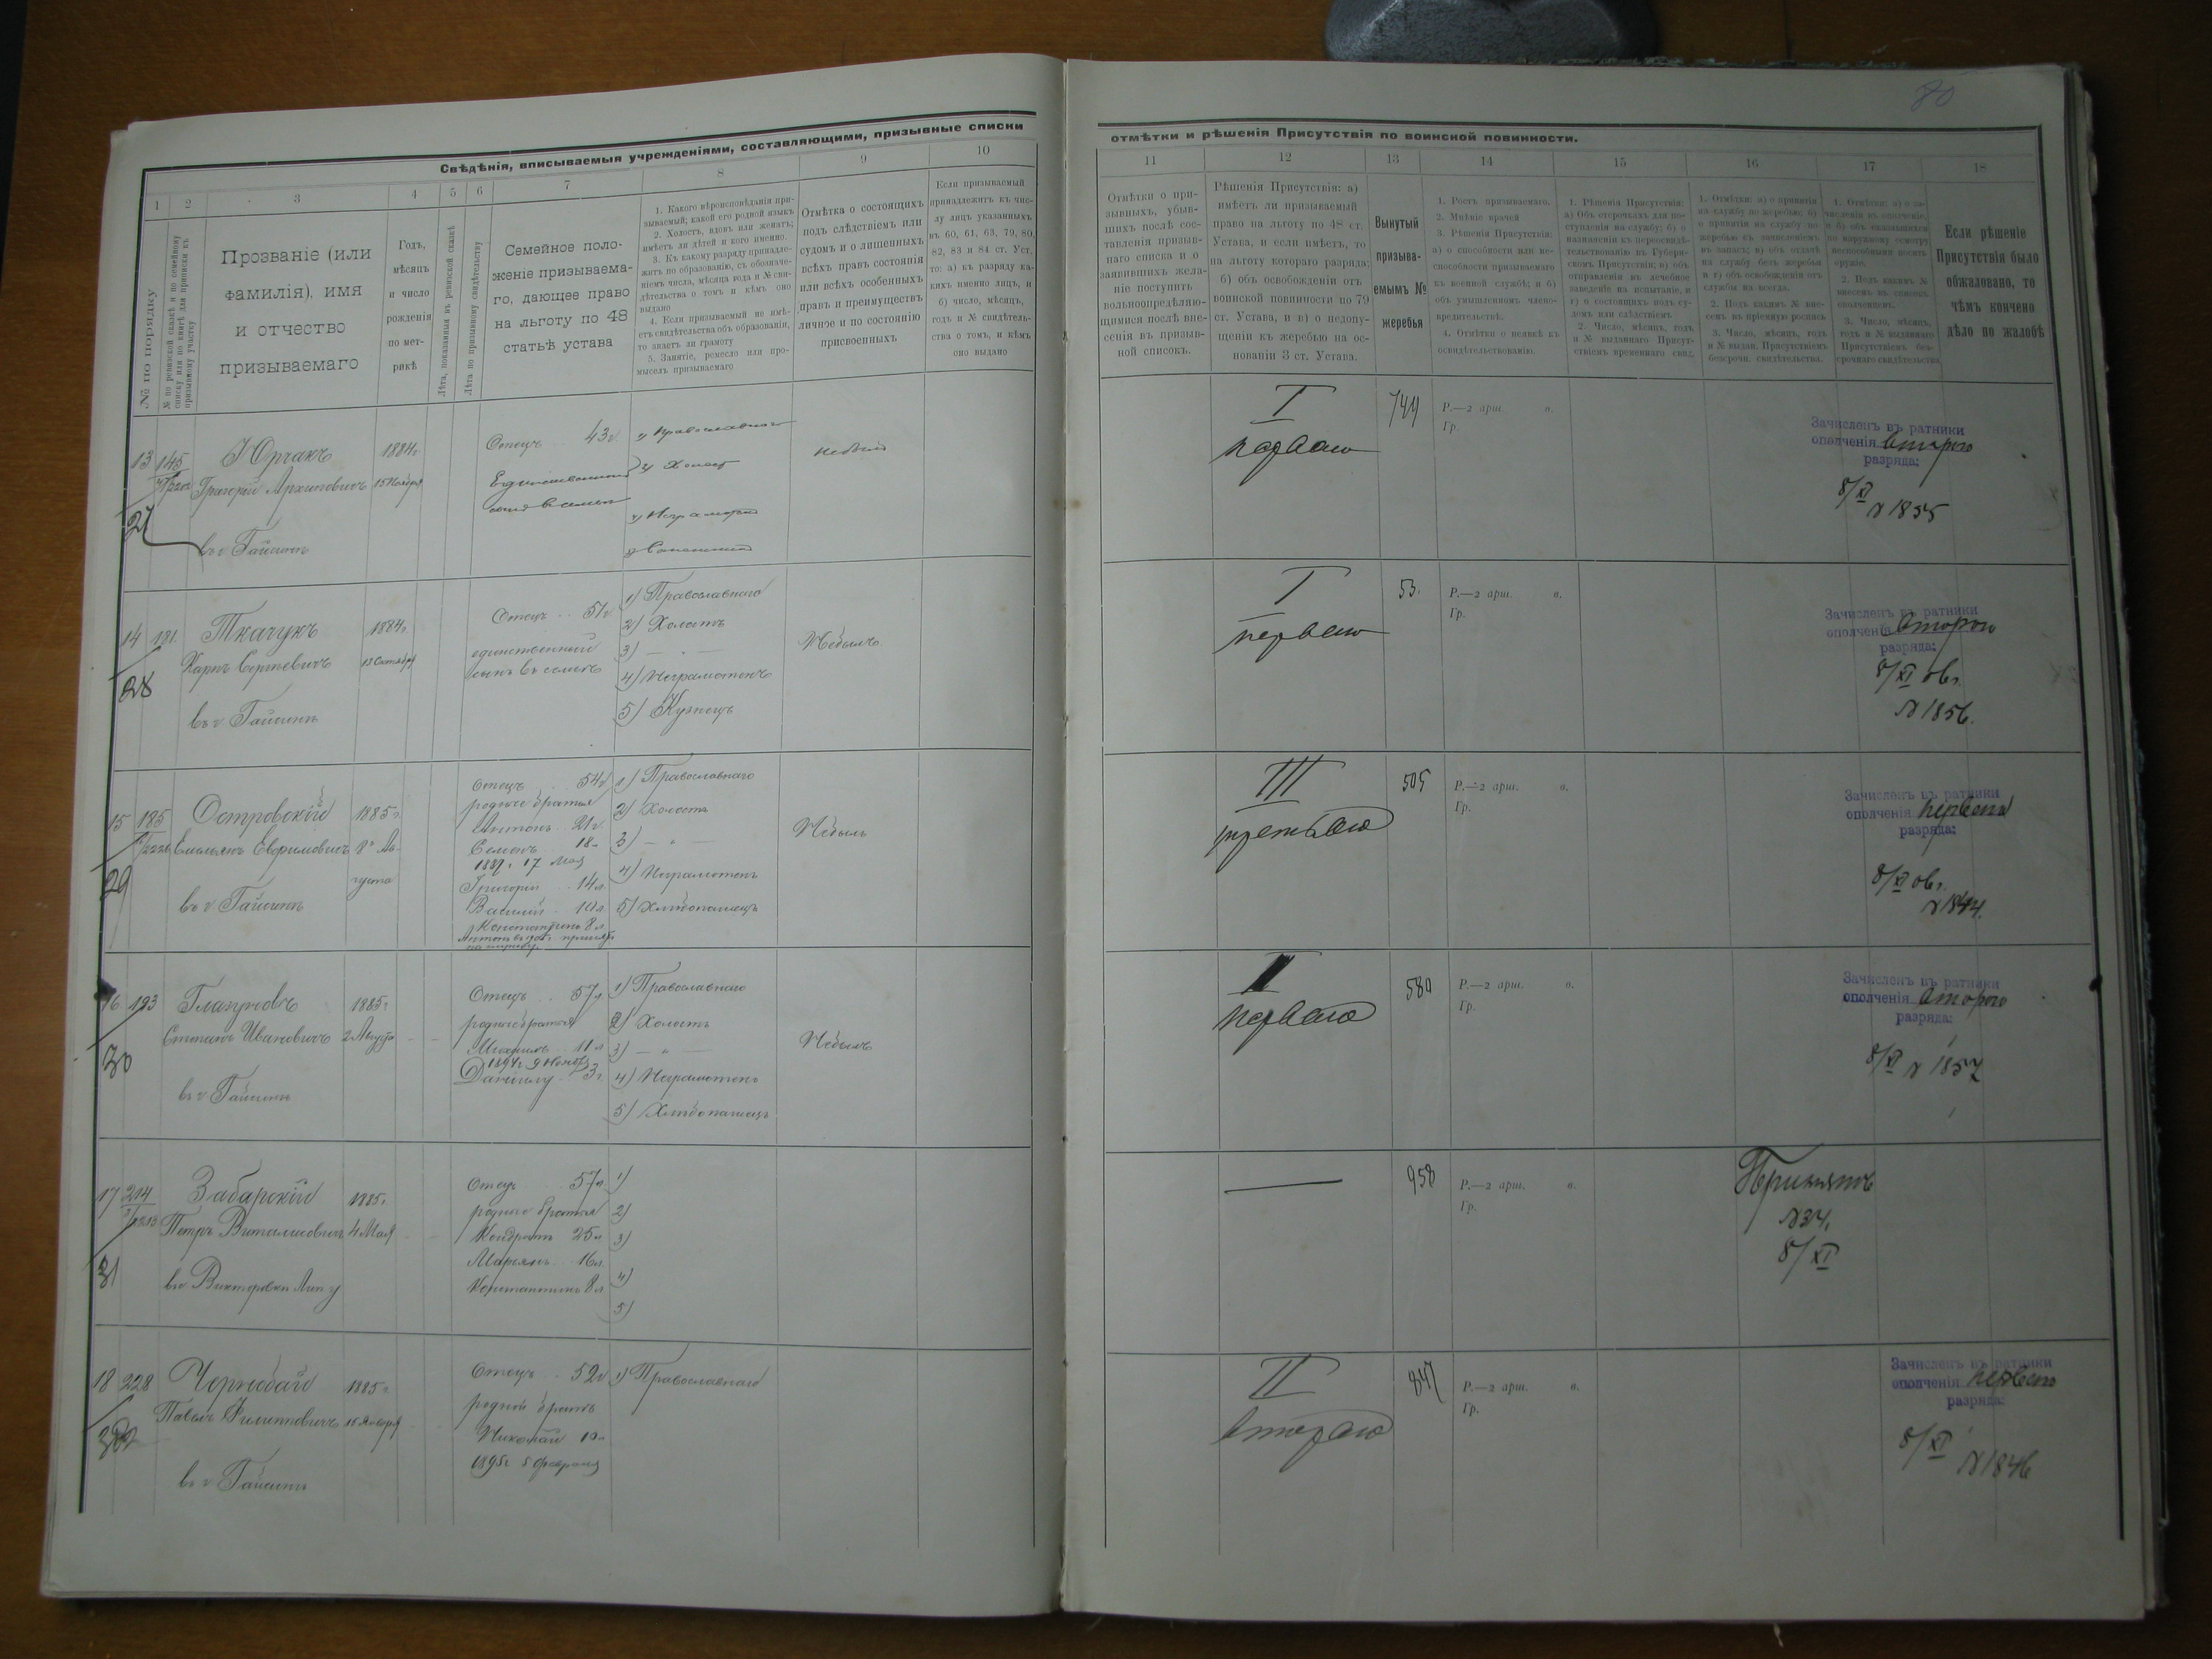 80
Свѣдѣнія, вписываемыя учрежденіями, составляющими, призывные списки
1 2 3 4 5 6 7 8 9 10
№ по порядку
№ по ревизской сказкѣ и по семейному
списку или по книгѣ для приписки къ
призывному участку
Прозваніе (или
фамилія), имя
и отчество
призываемаго
Годъ,
мѣсяцъ
и число
рожденія
по мет-
рикѣ
Лѣта, показанныя въ ревизской сказкѣ
Лѣта по призывному свидѣтельству
Семейное поло-
женіе призываема-
го, дающее право
на льготу по 48
статьѣ устава
1. Какого вѣроисповѣданія при-
зываемый; какой его родной языкъ
2. Холостъ, вдовъ или женатъ;
имѣетъ ли дѣтей и кого именно.
3. Къ какому разряду принадле-
житъ по образованію, съ обозначе-
ніемъ числа, мѣсяца года и № сви-
дѣтельства о томъ и кѣмъ оно
выдано
4. Если призываемый не имѣ-
етъ свидѣтельства объ образованіи,
то знаетъ ли грамоту
5. Занятіе, ремесло или про-
мыселъ призываемаго
Отмѣтка о состоящихъ
подъ слѣдствіемъ или
судомъ и о лишенныхъ
всѣхъ правъ состоянія
или всѣхъ особенныхъ
правъ и преимуществъ
личное и по состоянію
присвоенныхъ
Если призываемый
принадлежитъ къ чис-
лу лицъ указанныхъ
въ 60, 61, 63, 79, 80,
82, 83 и 84 ст. Уст.
то: а) къ разряду ка-
кихъ именно лицъ, и
б) число, мѣсяцъ,
годъ и № свидѣтель-
ства о томъ, и кѣмъ
оно выдано
13 145
27
Юрчакъ
Григорій Архиповичъ
въ г Гайсинѣ
1884г.
15 Ноября
Отецъ 43г.
Единственный
сынъ въ семьѣ
1) Православнаго
2) Холостъ
4) Неграмотенъ
небылъ
14 181.
28
Ткачукъ
Карпъ Сергѣевичъ
въ г Гайсинѣ
1884г.
13 Октября
Отецъ .. 51г
единственный
сынъ въ семьѣ
1) Православнаго
2) Холостъ
3) — „ —
4) Неграмотенъ
5) Кузнецъ
Небылъ
15 185
29
Островскій
Емельянъ Евфимовичъ
въ г Гайсинѣ
1885г.
8го Ав-
густа
Отецъ 54г
родные братья
Антонъ .. 21г.
Семенъ .. 18л
1887г. 17 Мая
Григорій .. 14л.
Василій .. 10л.
Константинъ 8л.
1) Православнаго
2) Холостъ
3) — „ —
4) Неграмотенъ
5) Хлѣбопашецъ
Небылъ
16. 193
30
Глазуновъ
Степанъ Ивановичъ
въ г Гайсинѣ
1885г
2 Августа
Отецъ .. 57л
родные братья
Михаилъ .. 11л
1894г. 9 Ноября
Даніилу .. 3г.
1) Православнаго
2) Холостъ
3) — „ —
4) Неграмотенъ
5) Хлѣбопашецъ
Небылъ
17 214
31
Забарскій
Петръ Виталисовичъ
1885г.
4 Мая
Отецъ .. 57л.
родные братья
Кондратъ 25л
Марьянъ .. 16л.
Константинъ 8л
1)
2)
3)
4)
5)
18 228
32
Чернобай
Павелъ Филипповичъ
въ г Гайсинѣ
1885г.
15 Января
Отецъ .. 52г
родной братъ
Николай 10л
1895г 5 февраля
1) Православнаго
отмѣтки и рѣшенія Присутствія по воинской повинности.
11 12 13 14 15 16 17 18
Отмѣтки о при-
зывныхъ, убыв-
шихъ послѣ сос-
тавленія призыв-
наго списка и о
заявившихъ жела-
ніе поступить
вольноопредѣляю-
щимися послѣ вне-
сенія въ призыв-
ной списокъ.
Рѣшенія Присутствія: а)
имѣетъ ли призываемый
право на льготу по 48 ст.
Устава, и если имѣетъ, то
на льготу котораго разряда;
б) объ освобожденіи отъ
воинской повинности по 79
ст. Устава, и в) о недопу-
щеніи къ жеребью на ос-
нованіи 3 ст. Устава.
Вынутый
призыва-
емымъ №
жеребья
1. Ростъ призываемаго.
2. Мнѣніе врачей
3. Рѣшенія Присутствія:
а) о способности или не-
способности призываемаго
къ военной службѣ; и б)
объ умышленномъ члено-
вредительствѣ.
4. Отмѣтки о неявкѣ къ
освидѣтельствованію.
1. Рѣшенія Присутствія:
а) Объ отсрочкахъ для по-
ступленія на службу; б) о
назначеніи къ переосвидѣ-
тельствованію въ Губерн-
скомъ Присутствіи; в) объ
отправленіи въ лечебное
заведеніе на испытаніе, и
г) о состоящихъ подъ су-
домъ или слѣдствіемъ
2. Число, мѣсяцъ, годъ
и № выданнаго Присут-
ствіемъ временнаго свид.
1. Отмѣтки: а) о принятіи
на службу по жеребью; б)
о принятіи на службу по
жеребью съ зачисленіемъ
въ запасъ; в) объ отдачѣ
на службу безъ жеребья
и г) объ освобожденіи отъ
службы на всегда.
2. Подъ какимъ № вне-
сенъ въ пріемную роспись
3. Число, мѣсяцъ, годъ
и № выдан. Присутствіемъ
безсрочн. свидѣтельства.
1. Отмѣтки: а) о за-
численіи въ ополченіе,
и б) объ оказавшихся
по наружному осмотру
неспособными носить
оружіе.
2. Подъ какимъ №
внесенъ въ списокъ
ополченцевъ.
3. Число, мѣсяцъ,
годъ и № выданнаго
Присутствіемъ без-
срочнаго свидѣтельства
Если рѣшеніе
Присутствія было
обжаловано, то
чѣмъ кончено
дѣло по жалобѣ
I
перваго
744
Р.—2 арш. в.
Гр.
Зачисленъ въ ратники
ополченія второго
разряда:
8/XI
№ 1855
I
перваго
53.
Р.—2 арш. в.
Гр.
Зачисленъ въ ратники
ополченія второго
разряда:
8/XI 06г.
№ 1856.
III
третьяго
505
Р.—2 арш. в.
Гр.
Зачисленъ въ ратники
ополченія перваго
разряда:
8/XI 06г.
№ 1844.
перваго
580
Р.—2 арш. в.
Гр.
Зачисленъ въ ратники
ополченія второго
разряда:
8/XI № 1857
—
958
Р.—2 арш. в.
Гр.
Принятъ
№ 34.
8/XI
II
второго
847
Р.—2 арш. в.
Гр.
Зачисленъ въ ратники
ополченія перваго
разряда:
8/XI
№ 1846